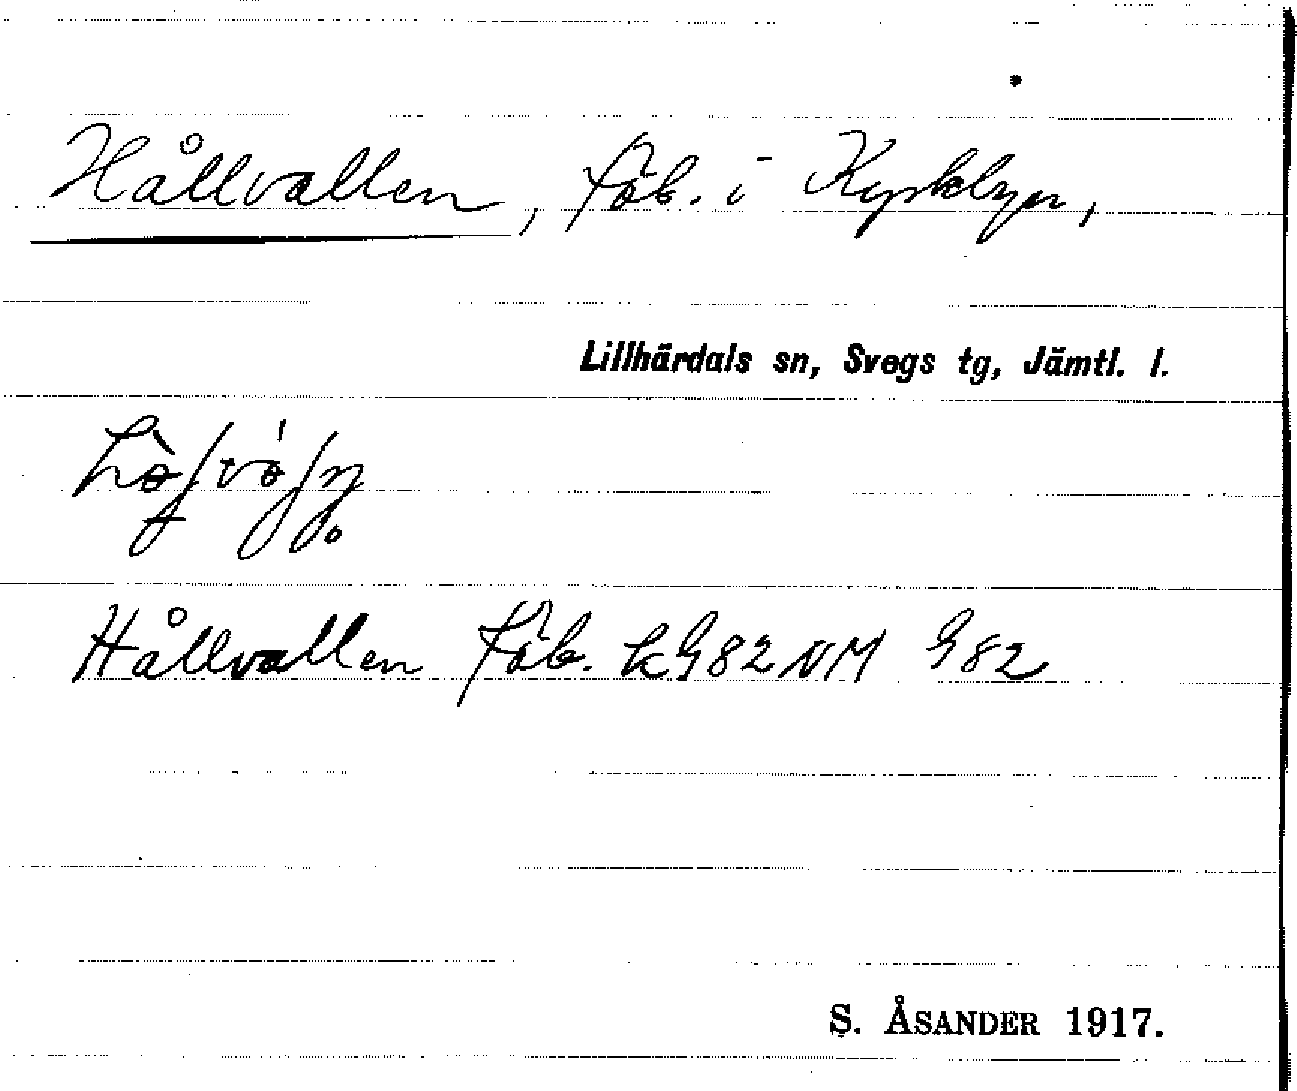 Hållvallen, fäb. i Kyrkbyn,
Lillhärdals sn, Svegs tg, Jämtl. l.
Hållvallen fäb. k G82 NM G82
S. ÅSANDER 1917.